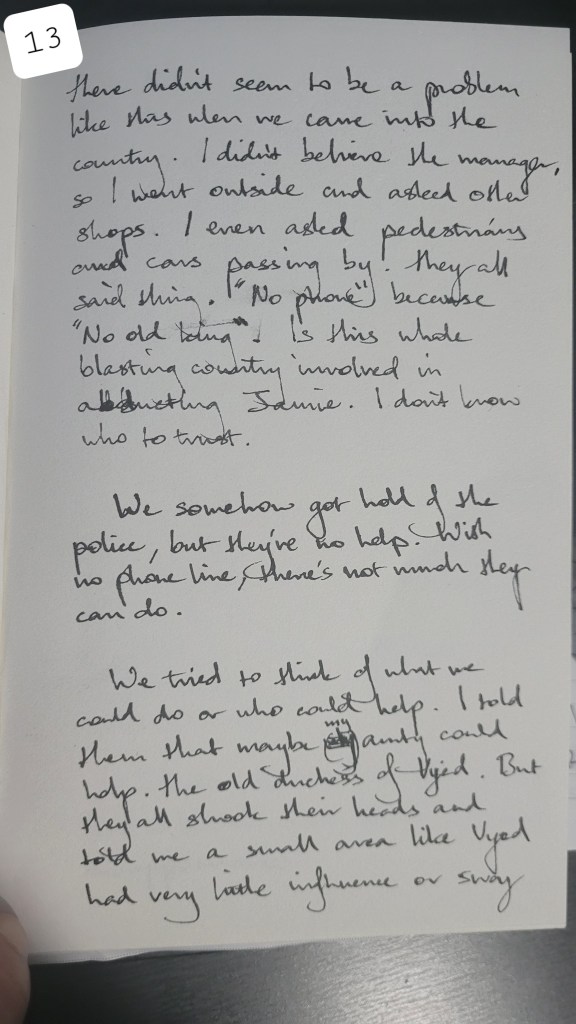 13
there didn't seem to be a problem
like this when we came into the
country. I didn't believe the manager,
so I went outside and asked other
shops. I even asked pedestrians
and cars passing by! They all
said thing. "No phone" because
"No old king". Is this whole
blasting country involved in
abducting Jamie. I don't know
who to trust.
We somehow got hold of the
police, but they're no help. With
no phone line, there's not much they
can do.
We tried to think of what we
could do or who could help. I told
them that maybe my aunty could
help. The old duchess of Vyed. But
they all shook their heads and
told me a small area like Vyed
had very little influence or sway